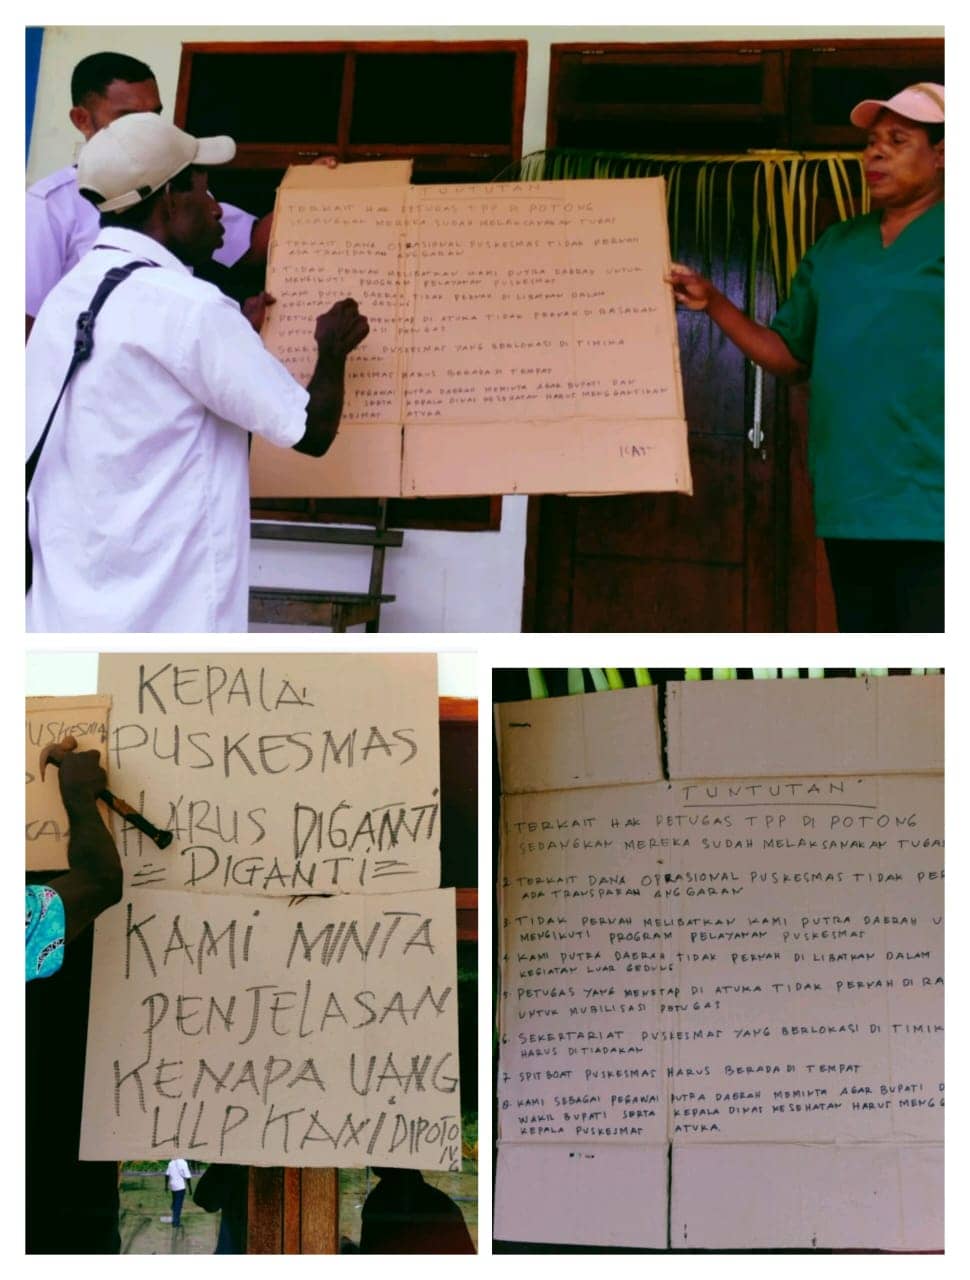 "TUNTUTAN"
1 TERKAIT HAK PETUGAS TPP DI POTONG
SEDANGKAN MEREKA SUDAH MELAKSANAKAN TUGAS
2 TERKAIT DANA OPRASIONAL PUSKESMAS TIDAK PERNAH
ADA TRANSPARAN ANGGARAN
3 TIDAK PERNAH MELIBATKAN KAMI PUTRA DAERAH UNTUK
MENGIKUTI PROGRAM PELAYANAN PUSKESMAS
KAMI PUTRA DAERAH TIDAK PERNAH DI LIBATKAN DALAM
KEGIATAN GEDUNG
PETUGAS MENETAP DI ATUKA TIDAK PERNAH DI
UNTUK PETUGAS
PUSKESMAS YANG BERLOKASI DI TIMIKA
HARUS
HARUS BERADA DI TEMPAT
PEGAWAI PUTRA DAERAH MEMINTA AGAR BUPATI DAN
SERTA KEPALA DINAS KESEHATAN HARUS MENGGANTIKAN
ATUKA
KEPALA
PUSKESMAS
HARUS DIGANTI
= DIGANTI =
KAMI MINTA
PENJELASAN
KENAPA UANG
ULP KAMI DIPOTO
"TUNTUTAN"
1 TERKAIT HAK PETUGAS TPP DI POTONG
SEDANGKAN MEREKA SUDAH MELAKSANAKAN TUGAS
2 TERKAIT DANA OPRASIONAL PUSKESMAS TIDAK PER
ADA TRANSPARAN ANGGARAN
3. TIDAK PERNAH MELIBATKAN KAMI PUTRA DAERAH U
MENGIKUTI PROGRAM PELAYANAN PUSKESMAS
4 KAMI PUTRA DAERAH TIDAK PERNAH DI LIBATKAN DALAM
KEGIATAN LUAR GEDUNG
5. PETUGAS YANG MENETAP DI ATUKA TIDAK PERNAH DI RA
UNTUK MUBILISASI PETUGAS
6. SEKERTARIAT PUSKESMAS YANG BERLOKASI DI TIMIK
HARUS DITIADAKAN
7 SPITBOAT PUSKESMAS HARUS BERADA DI TEMPAT
8. KAMI SEBAGAI PEGAWAI PUTRA DAERAH MEMINTA AGAR BUPATI D
WAKIL BUPATI SERTA KEPALA DINAS KESEHATAN HARUS MENGG
KEPALA PUSKESMAS ATUKA.